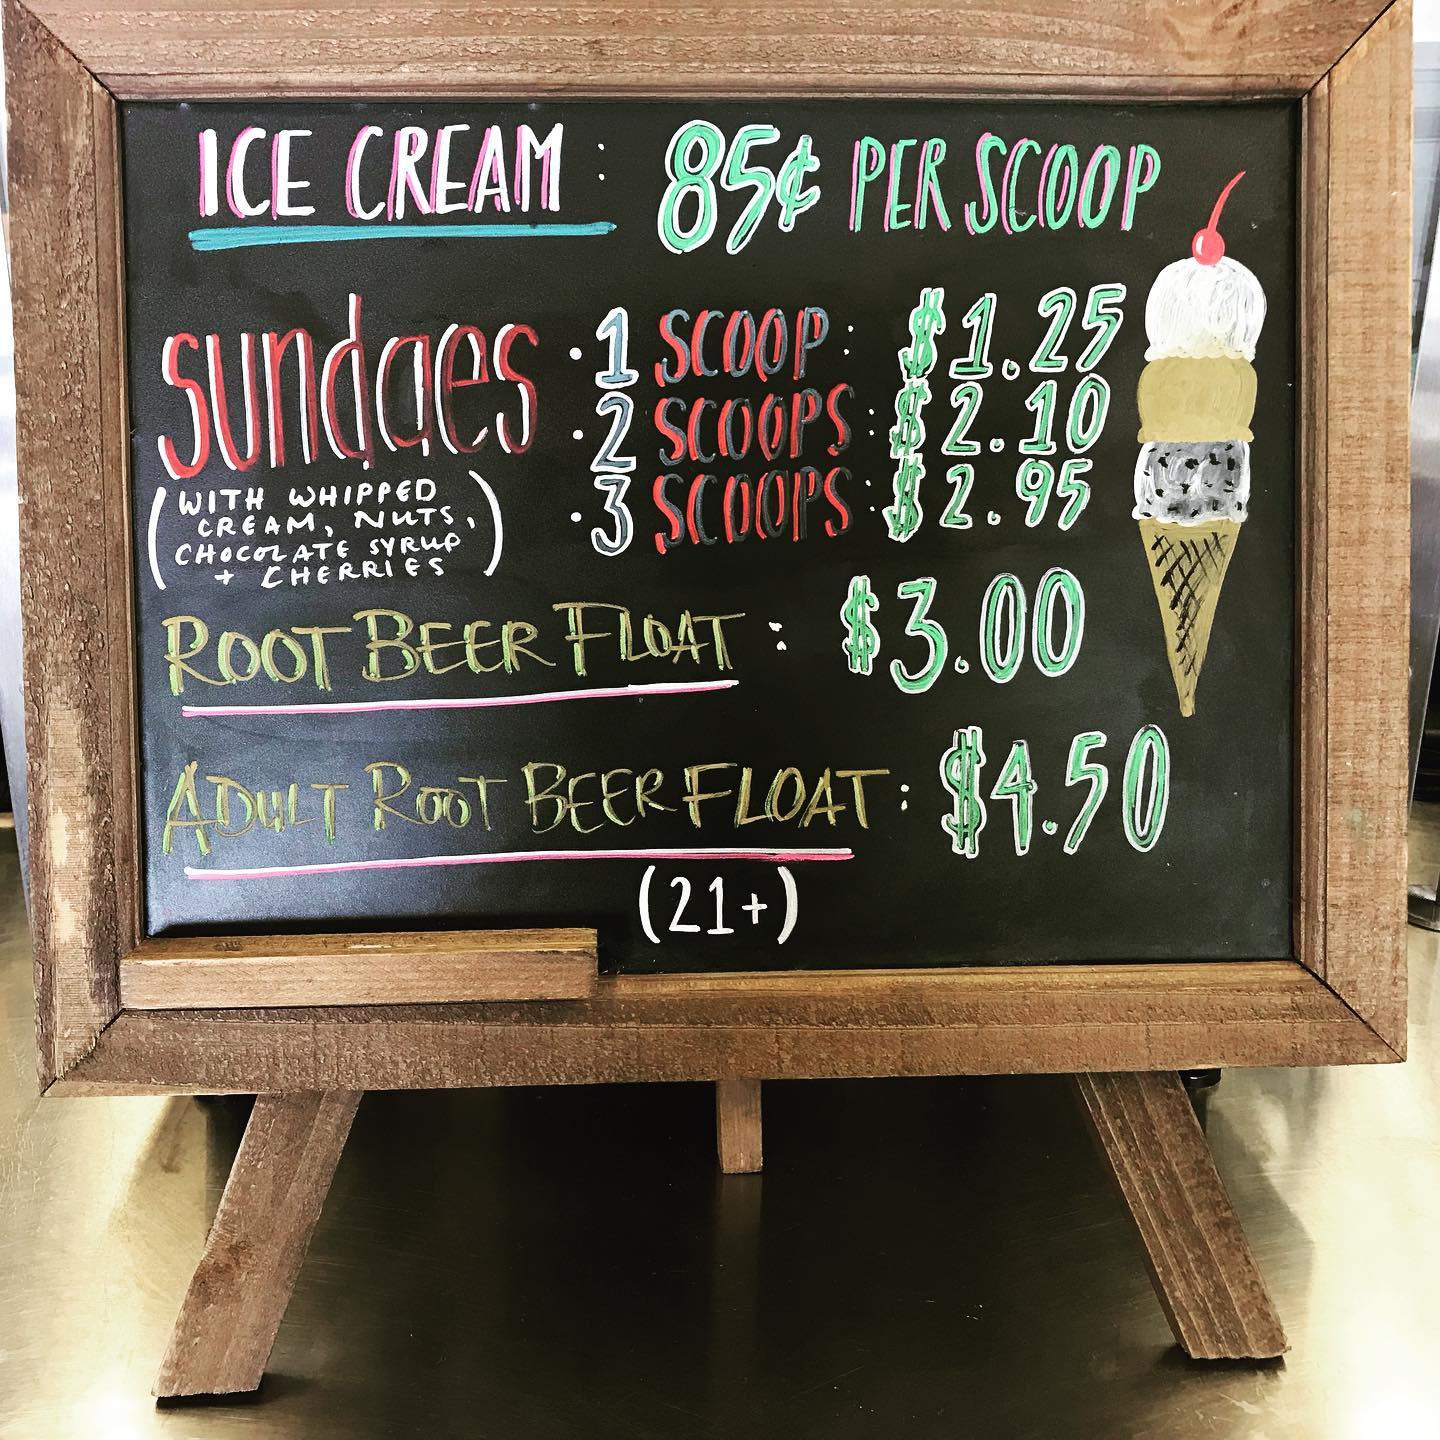 ICE CREAM : 85¢ PER SCOOP
sundaes
(WITH WHIPPED
CREAM, NUTS,
CHOCOLATE SYRUP
+ CHERRIES)
· 1 SCOOP: $1.25
· 2 SCOOPS: $2.10
· 3 SCOOPS: $2.95
ROOT BEER FLOAT: $3.00
ADULT ROOT BEER FLOAT: $4.50
(21+)